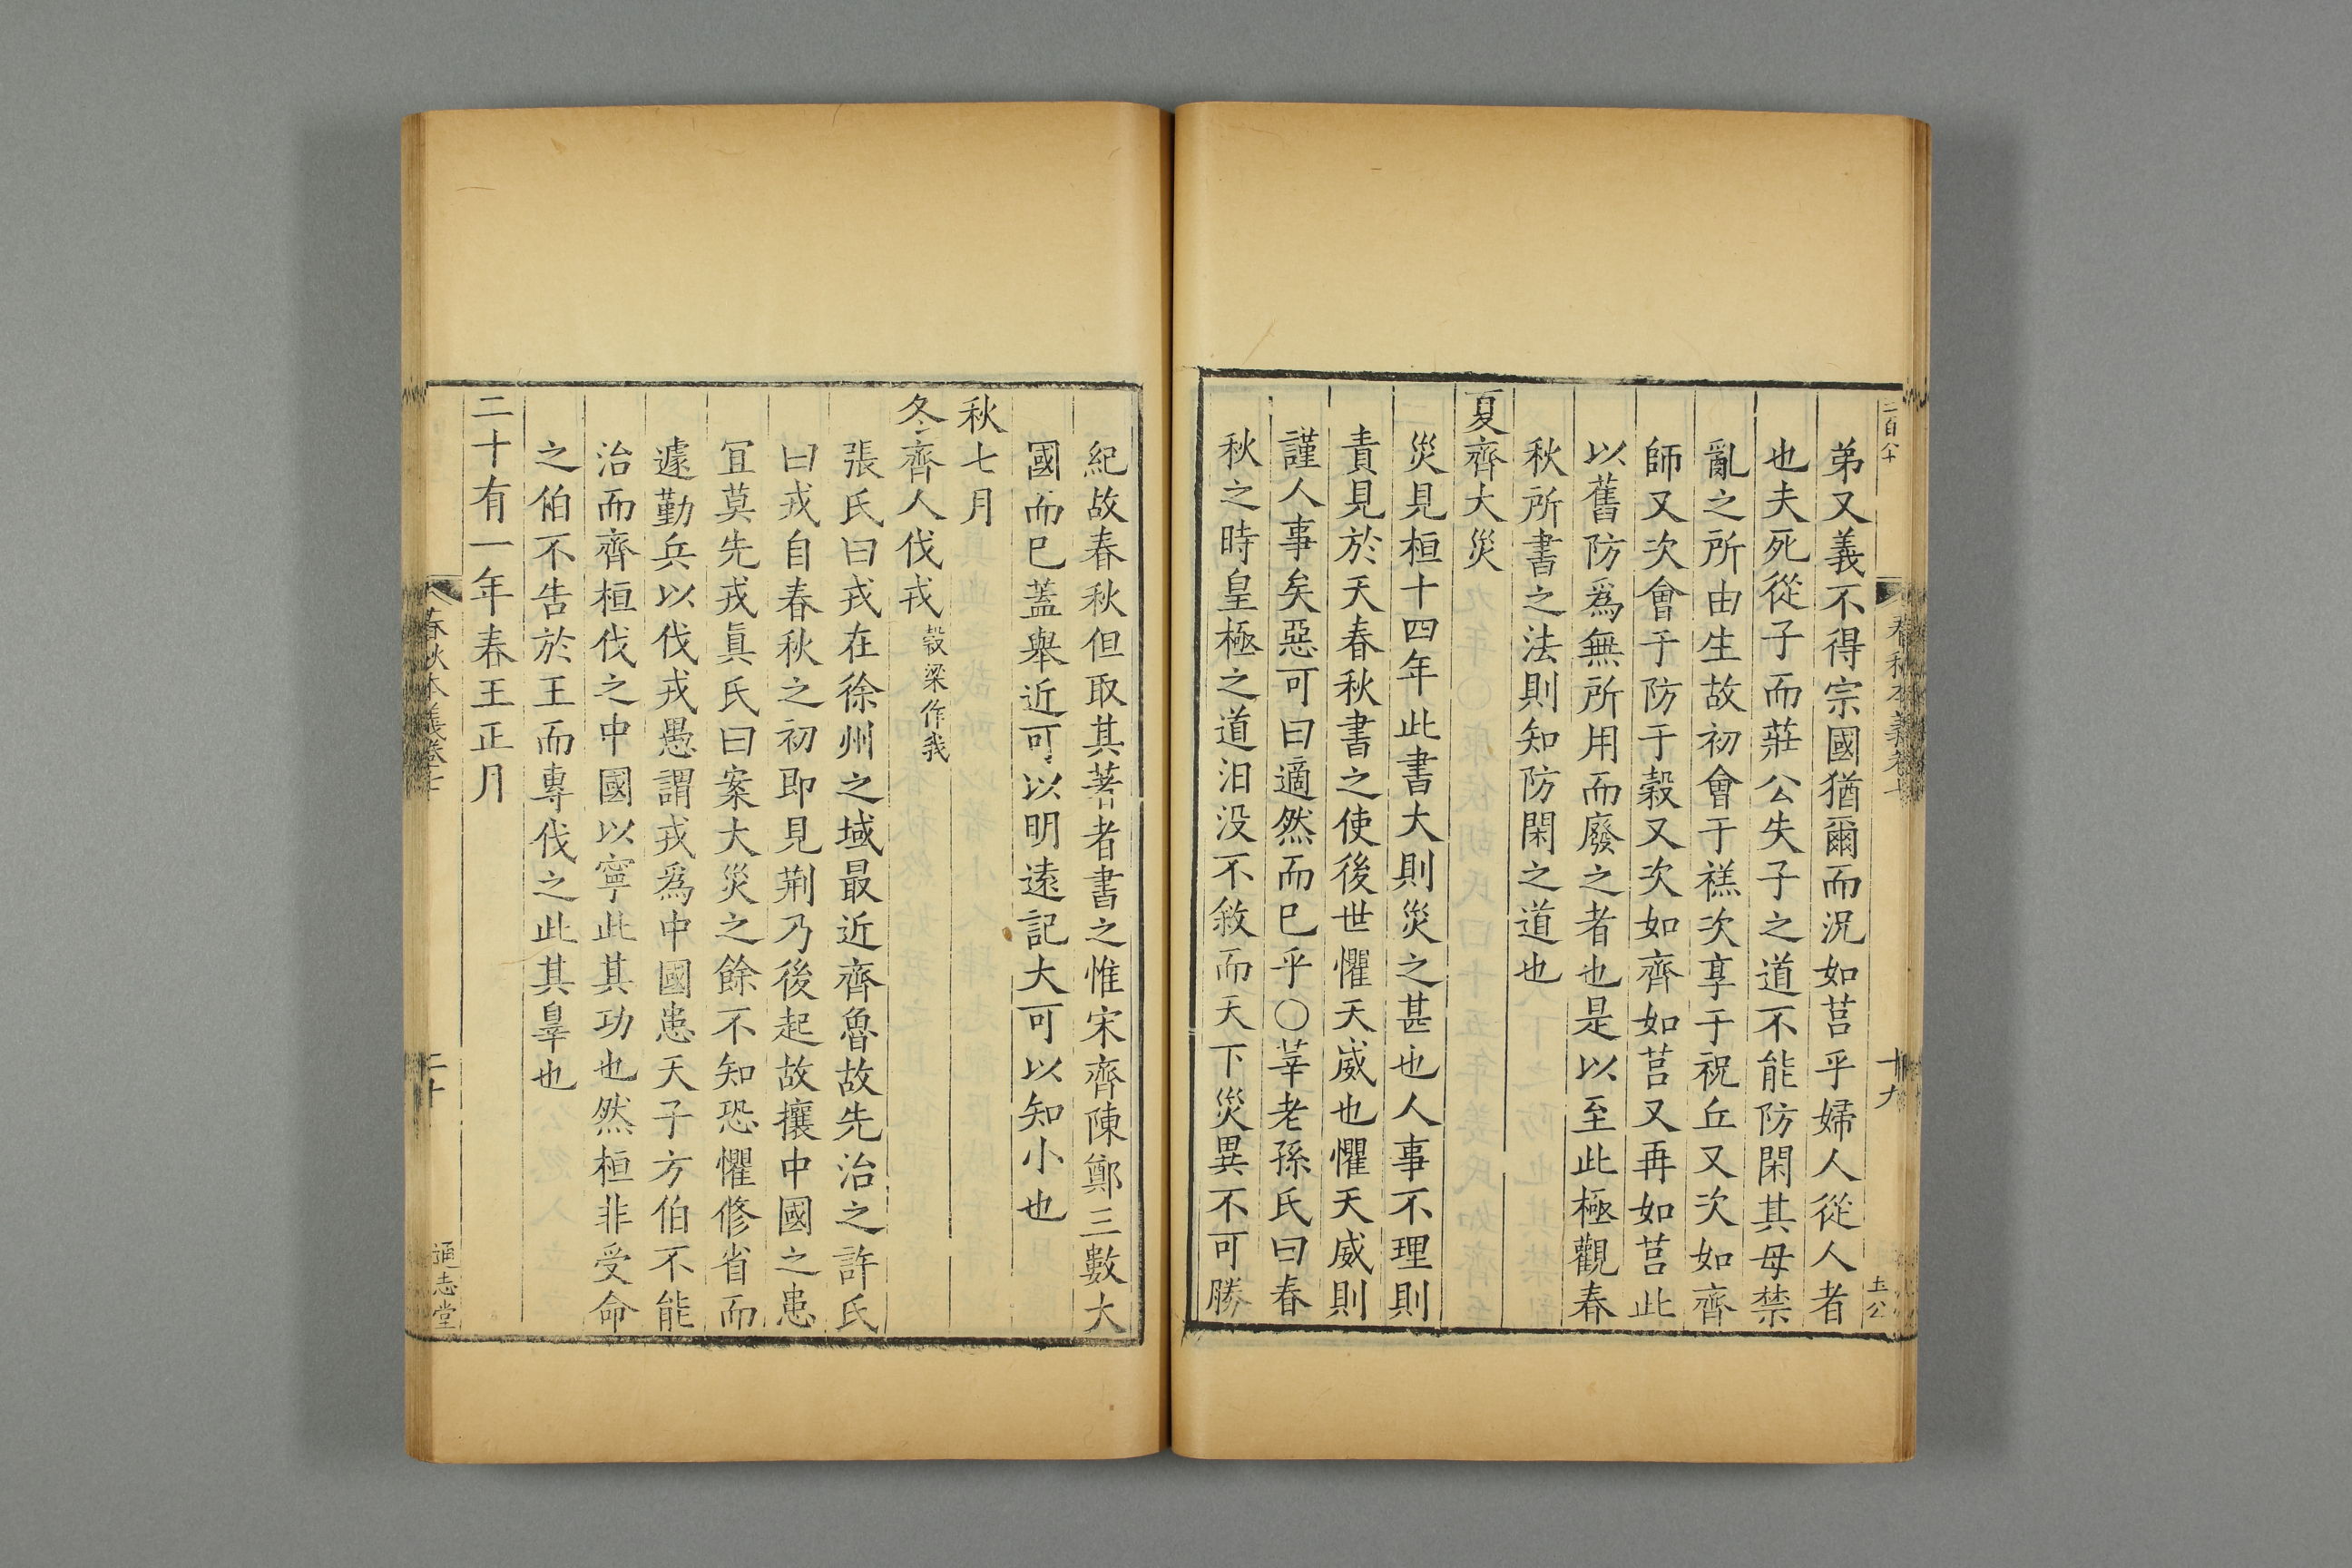 二百八十
春秋本義卷七
十九
玉公
弟又義不得宗國猶爾而況如莒乎婦人從人者
也夫死從子而莊公失子之道不能防閑其母禁
亂之所由生故初會于禚次享于祝丘又次如齊
師又次會于防于穀又次如齊如莒又再如莒此
以舊防爲無所用而廢之者也是以至此極觀春
秋所書之法則知防閑之道也
夏齊大災
災見桓十四年此書大則災之甚也人事不理則
責見於天春秋書之使後世懼天威也懼天威則
謹人事矣惡可曰適然而巳乎○莘老孫氏曰春
秋之時皇極之道汨没不敘而天下災異不可勝
紀故春秋但取其著者書之惟宋齊陳鄭三數大
國而巳蓋舉近可以明遠記大可以知小也
秋七月
冬齊人伐戎穀梁作我
張氏曰戎在徐州之域最近齊魯故先治之許氏
曰戎自春秋之初即見荆乃後起故攘中國之患
冝莫先戎眞氏曰案大災之餘不知恐懼修省而
遽勤兵以伐戎愚謂戎爲中國患天子方伯不能
治而齊桓伐之中國以寧此其功也然桓非受命
之伯不告於王而專伐之此其辠也
二十有一年春王正月
春秋本義卷七
二十
通志堂